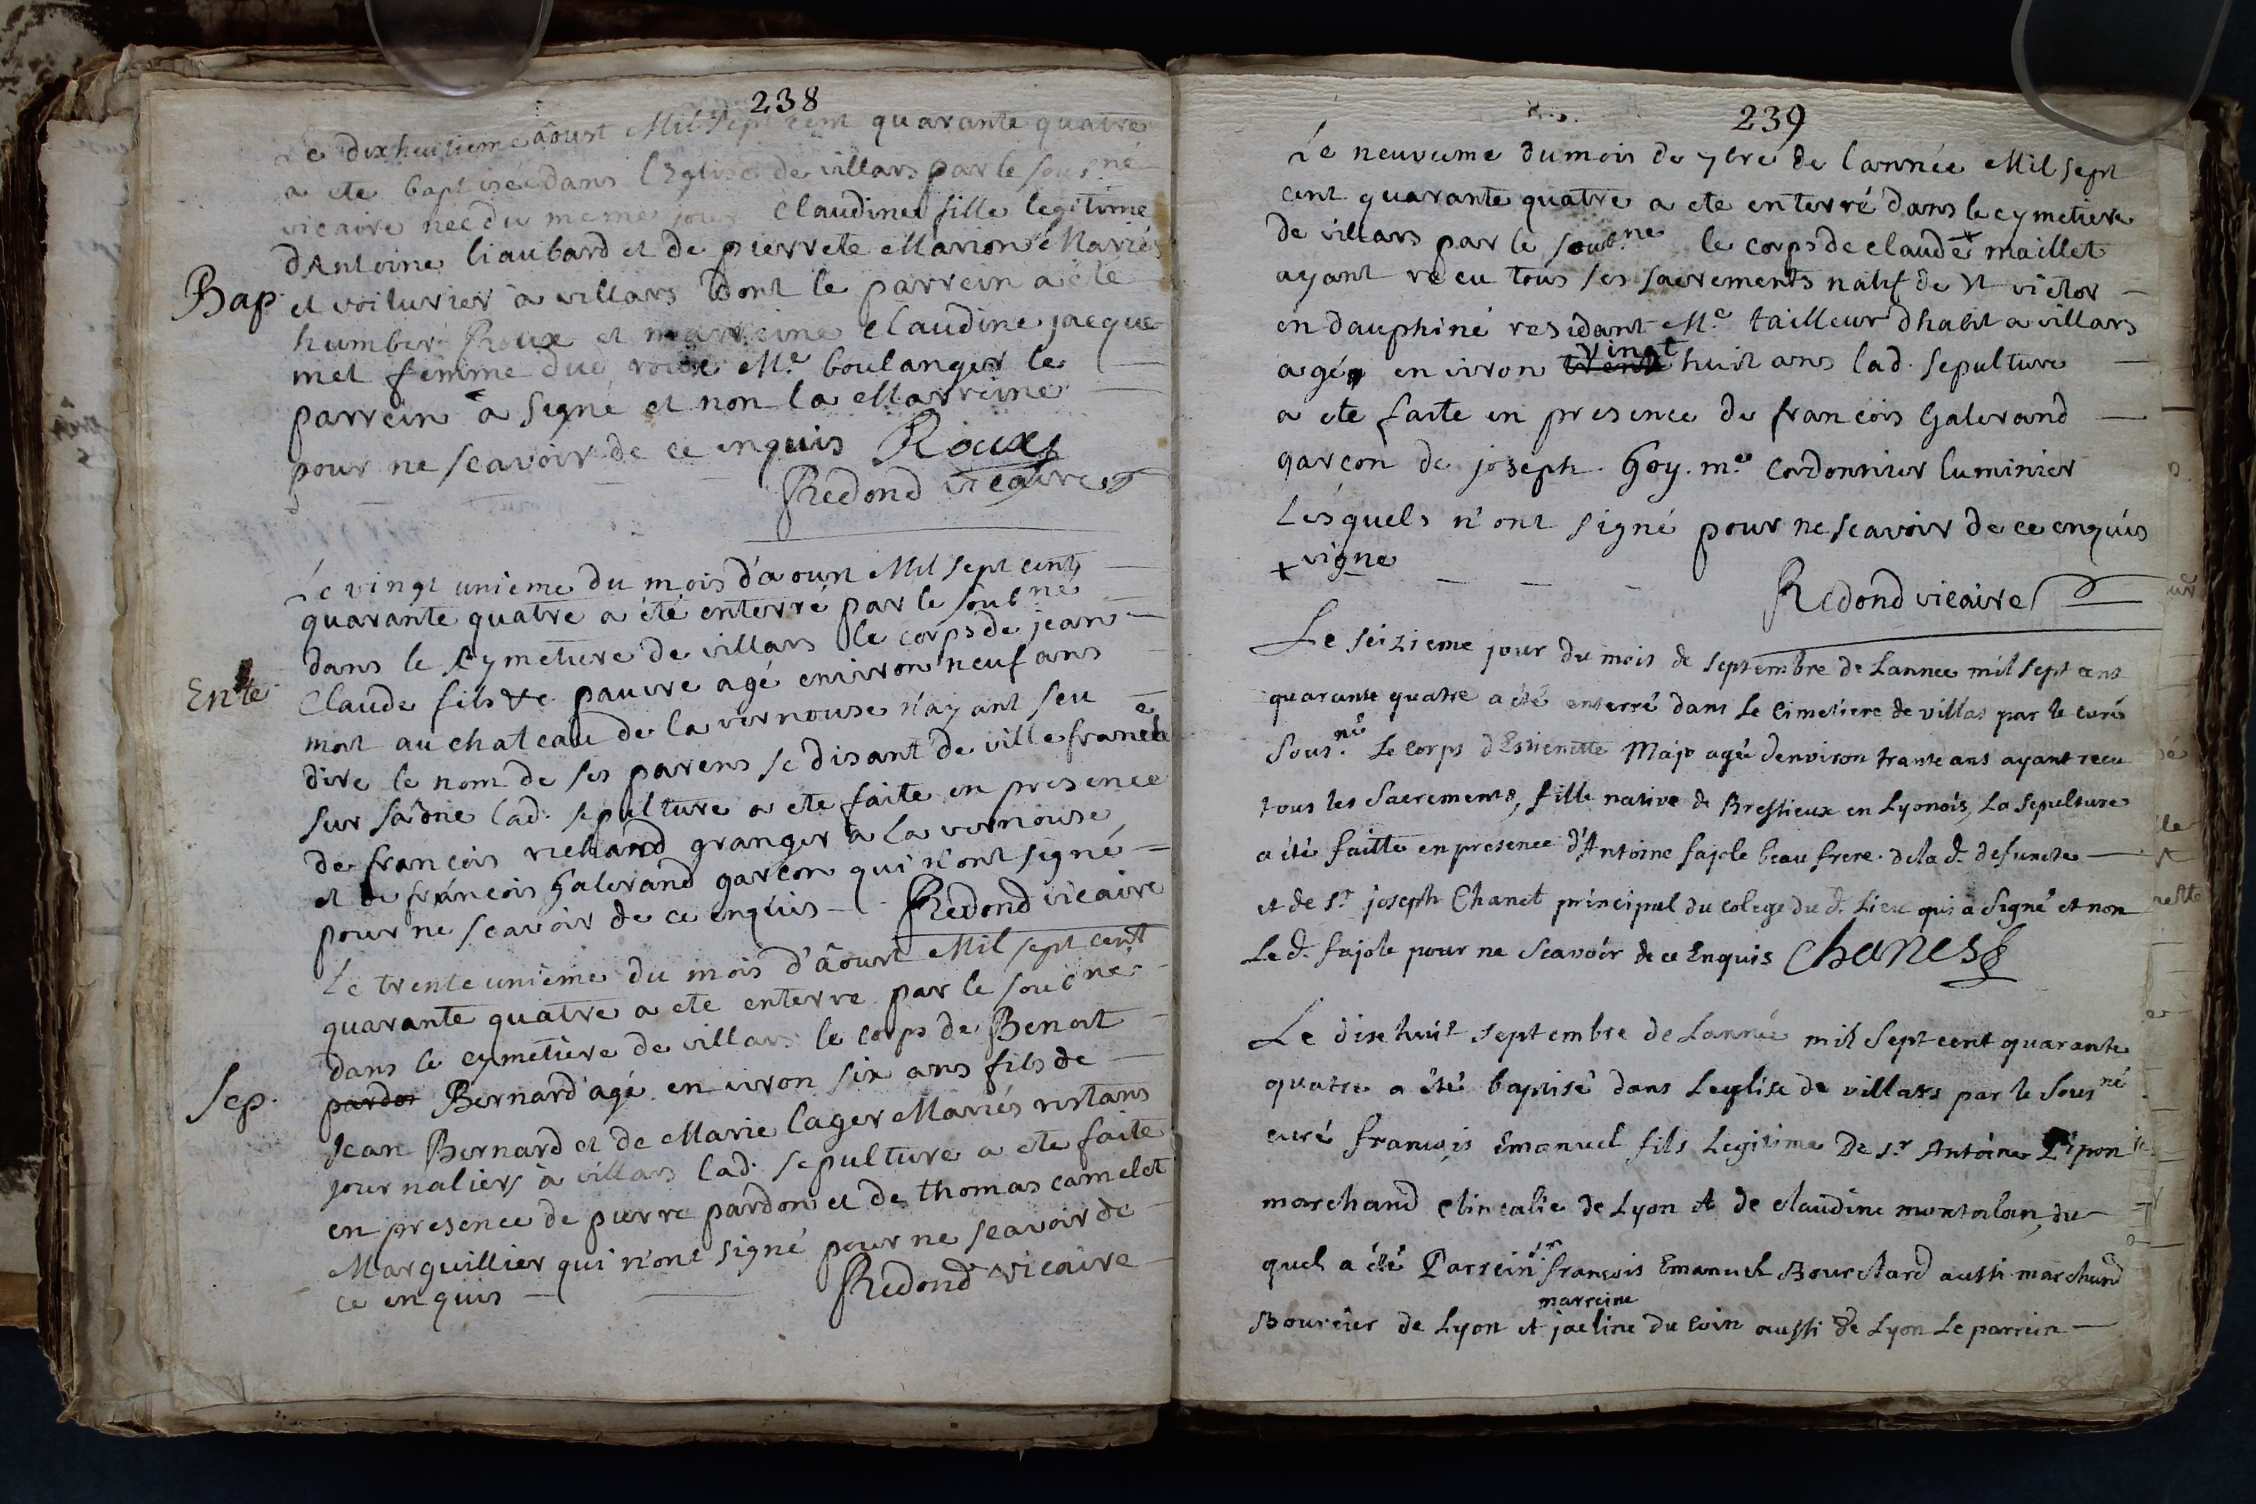 238
Le dixhuitieme âoust Mil Sept cent quarante quatre
a ete baptisée dans l'Eglise de villars par le sousné
vicaire née du meme jour Claudine fille legitime
d'Antoine liaubard et de pierrete Marion Mariés
Bap. et voiturier a villars dont le parrein a ete
humbert Roux et marreine Claudine jacque-
met femme dud. roux Me. boulanger le
parrein a signé et non la Marreine
pour ne scavoir de ce enquis Roux
Redond vicaire
Le vingt unieme du mois d'aoust Mil sept cent
quarante quatre a été enterré par le soubné
dans le cymetiere de villars le corps de jean
Ente Claude fils &c pauvre agé environ neuf ans
mort au chateau de la vernouse n'ayant seu
dire le nom de ses parens se disant de ville franche
sur saône lad. sepulture a ete faite en presence
de francois richand granger a la vernouse
et de francois Galerand garcon qui n'ont signé
pour ne scavoir de ce enquis - Redond vicaire
Le trente unieme du mois d'âoust Mil sept cent
quarante quatre a ete enterre par le soubné
dans le cymetiere de villars le corps de Benoit
Sep. pardon Bernard agé environ six ans fils de
Jean Bernard et de Marie lager Mariés restans
journaliers à villars lad. sepulture a ete faite
en presence de pierre pardon et de thomas camelet
Marguillier qui n'ont signé pour ne scavoir de
ce enquis - Redond vicaire
239
Le neuvieme du mois de 7bre de l'année Mil sept
cent quarante quatre a ete enterré dans le cymetiere
de villars par le soubné le corps de claude x maillet
ayant recu tous ses sacrements natif de St victor
en dauphiné residant Me. tailleur dhabit a villars
vingt
agé environ trente huit ans lad. sepulture
a ete faite en presence de francois Galerand
garcon de joseph Goy. me. cordonnier luminier
Lesquels n'ont signé pour ne scavoir de ce enquis
x vigne
Redond vicaire
Le seizieme jour du mois de septembre de Lannee mil sept cent
quarante quatre a été enterré dans Le Cimetiere de villas par le curé
Sousné Le corps d'Estienette Majo agée denviron trante ans ayant recu
tous les Sacrements, fille native de Bressieux en Lyonois, La Sepulture
a été faitte en presence d'Antoine fajole beau frere. de la d. defuncte
et de sr. joseph Chanet principal du colege du d. Lieu qui a Signé et non
Le d. fajole pour ne Scavoir de ce Enquis Chanet
Le dixe huit septembre de Lannée mil Sept cent quarante
quatre a été baptisé dans Leglise de villars par le Sousné
curé françois Emanuel fils Legitime De sr. Antoine Pipon
marchand clincalie de Lyon et de claudine montalan, du
quel a été Parrein sr. françois Emanuel Bourchard aussi marchand
marreine
Boursier de Lyon et jacline du Coin aussi de Lyon Le parrein